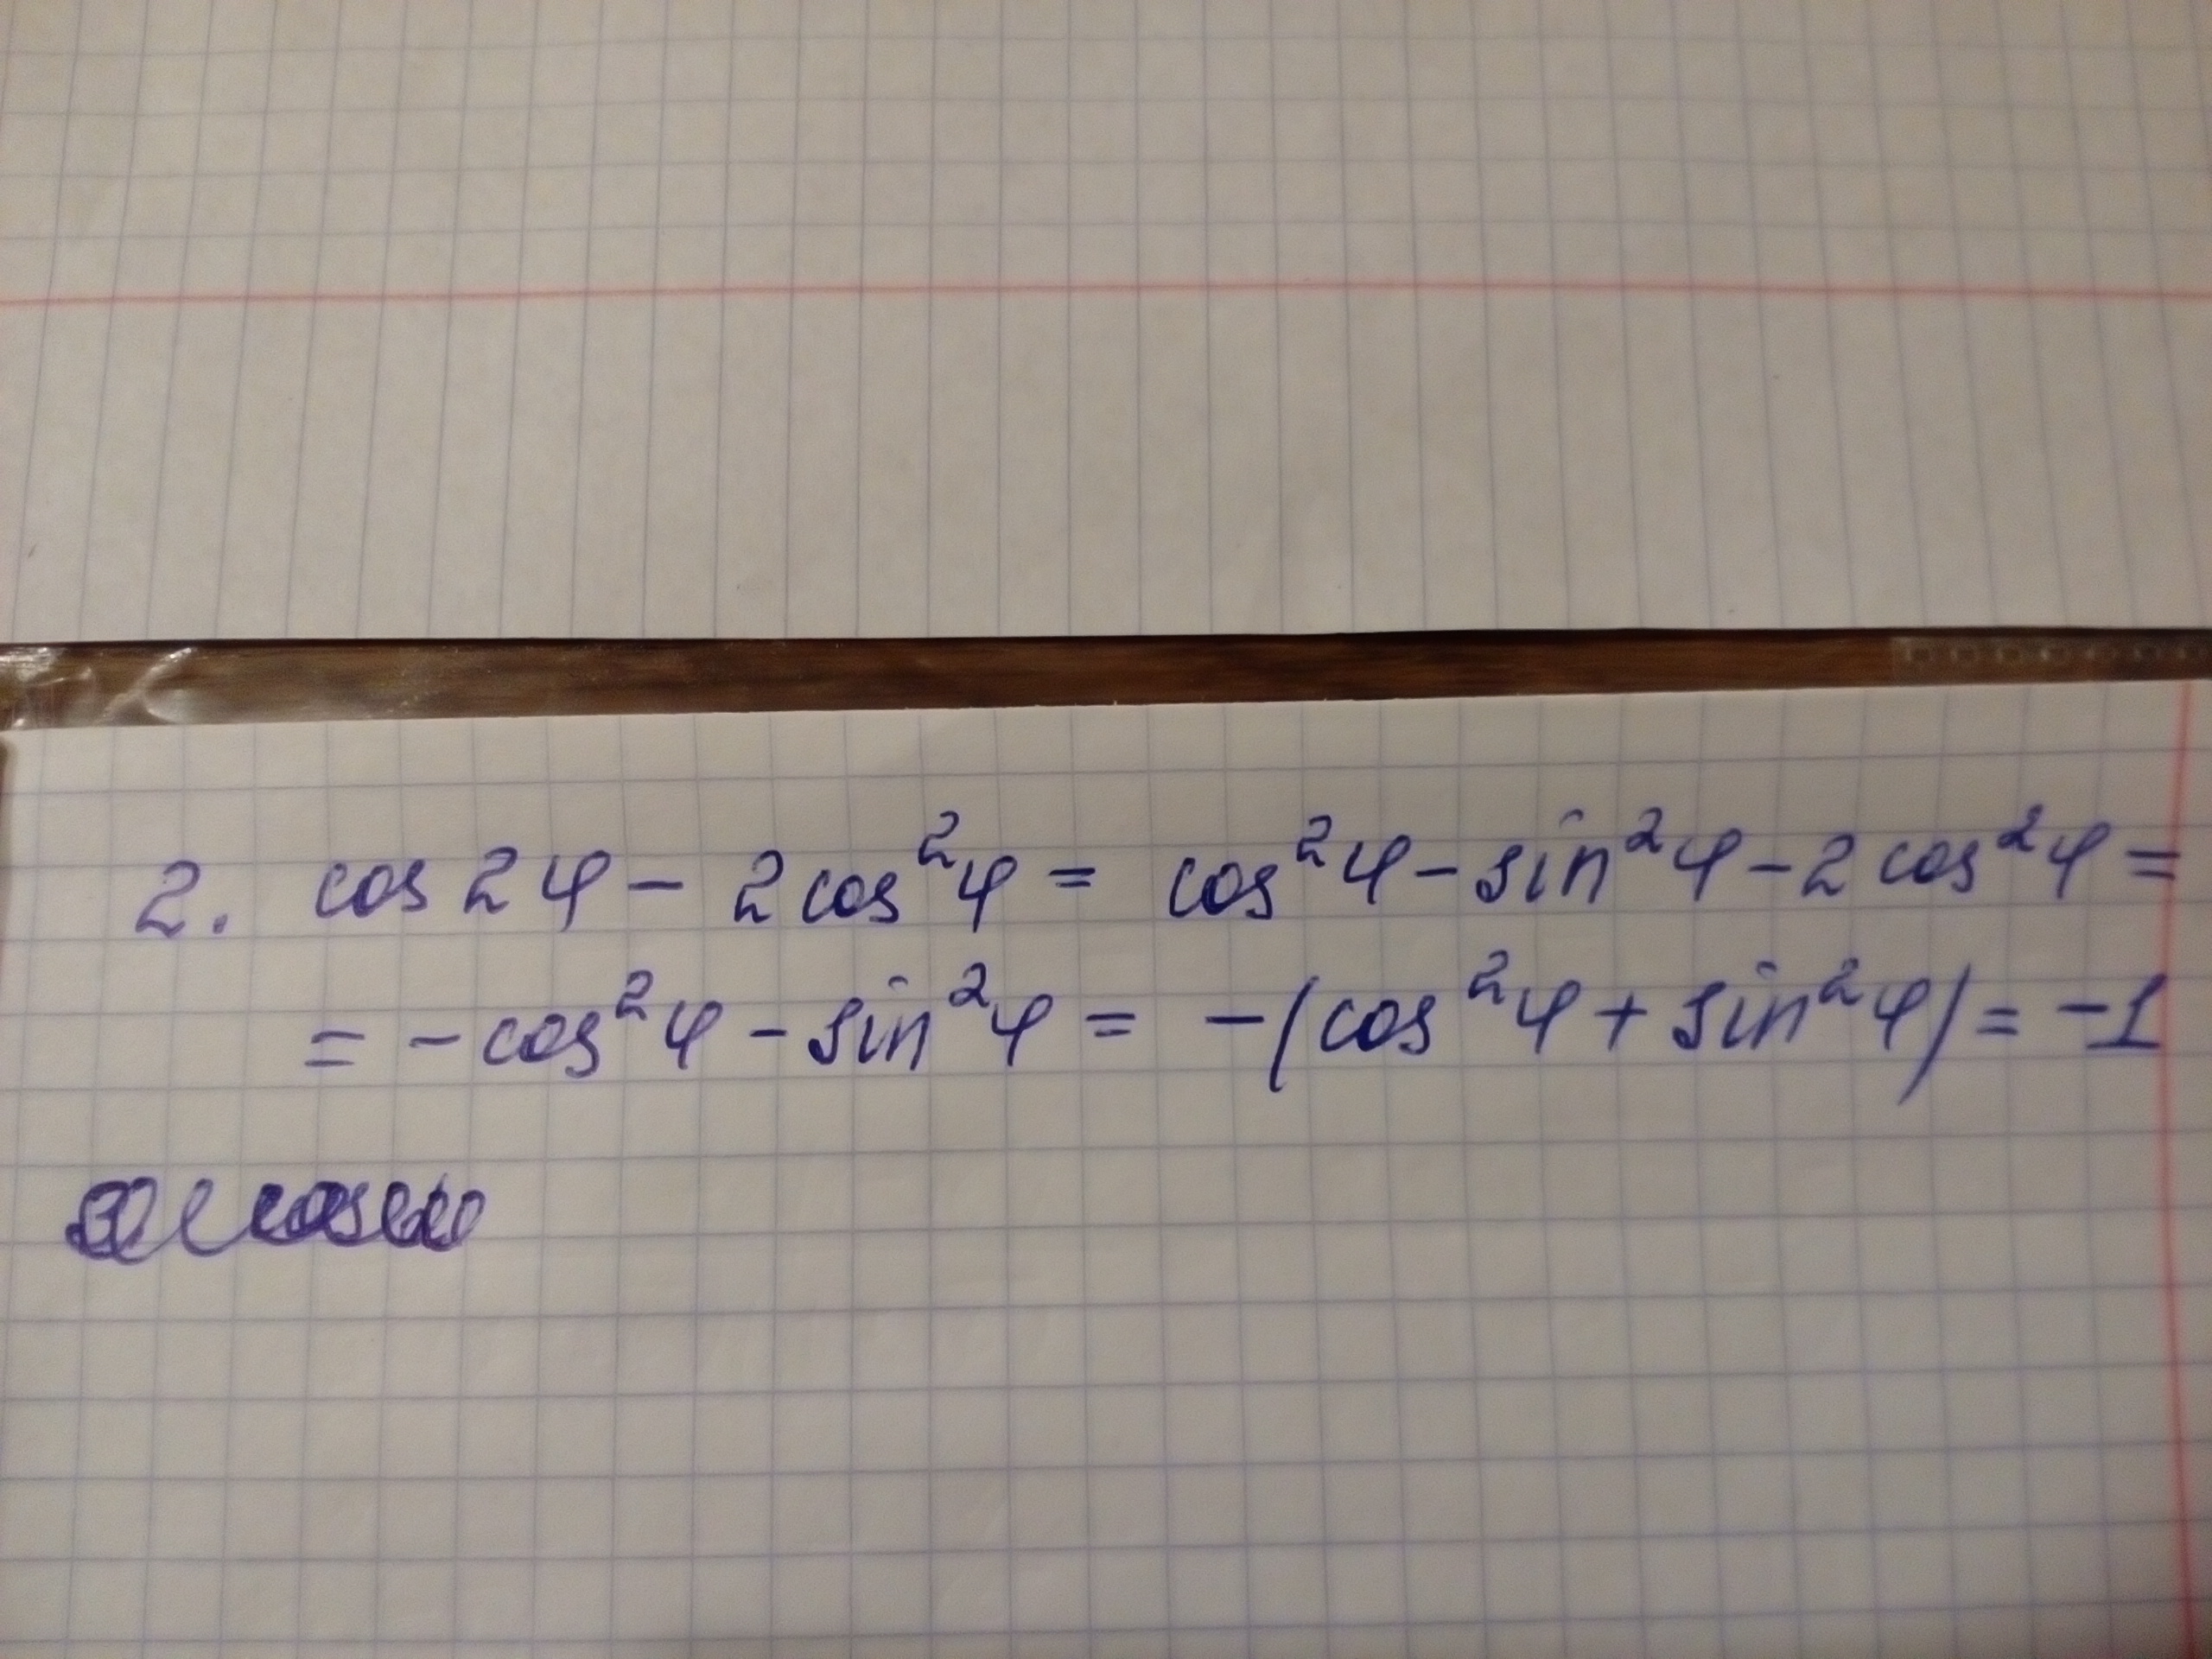 2. cos 2φ - 2cos²φ = cos²φ - sin²φ - 2cos²φ =
= -cos²φ - sin²φ = -(cos²φ + sin²φ) = -1